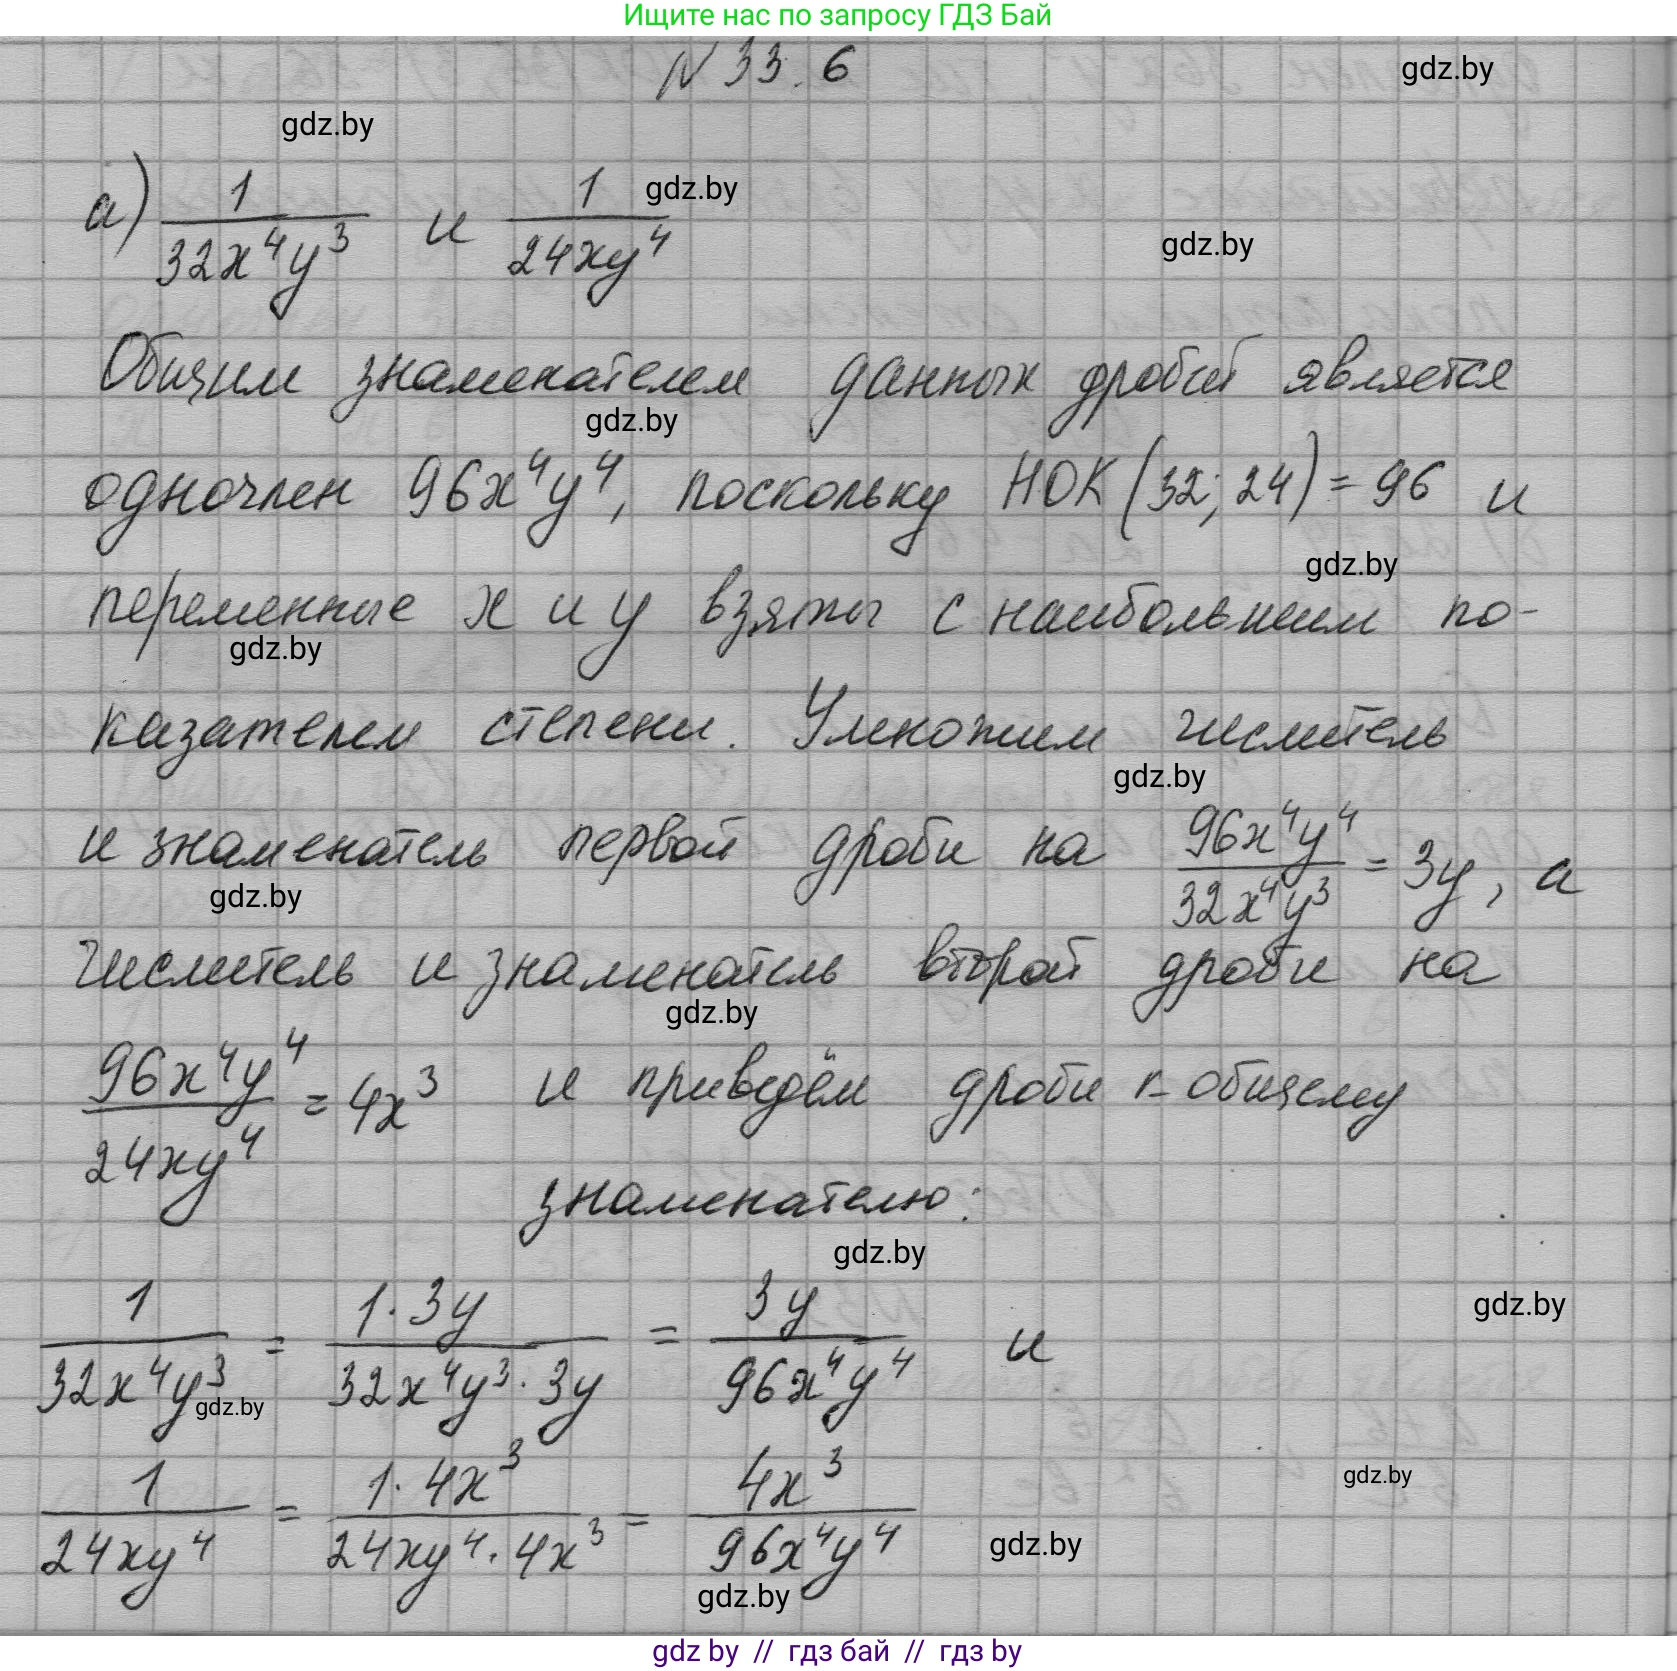 Ищите нас по запросу ГДЗ Бай
N 33.6
gdz.by
gdz.by
а) 1/(32x⁴y³) и 1/(24xy⁴)
gdz.by
gdz.by
Общим знаменателем данных дробей является
gdz.by
одночлен 96x⁴y⁴, поскольку НОК (32; 24) = 96 и
gdz.by
переменные x и y взяты с наибольшим по-
gdz.by
казателем степени. Умножим числитель
gdz.by
и знаменатель первой дроби на 96x⁴y⁴/(32x⁴y³) = 3y, а
gdz.by
числитель и знаменатель второй дроби на
gdz.by
96x⁴y⁴/(24xy⁴) = 4x³ и приведём дроби к общему
знаменателю:
gdz.by
gdz.by
1/(32x⁴y³) = (1·3y)/(32x⁴y³·3y) = 3y/(96x⁴y⁴) и
gdz.by
gdz.by
1/(24xy⁴) = (1·4x³)/(24xy⁴·4x³) = 4x³/(96x⁴y⁴)
gdz.by
gdz.by
gdz by // гдз бай // гдз by